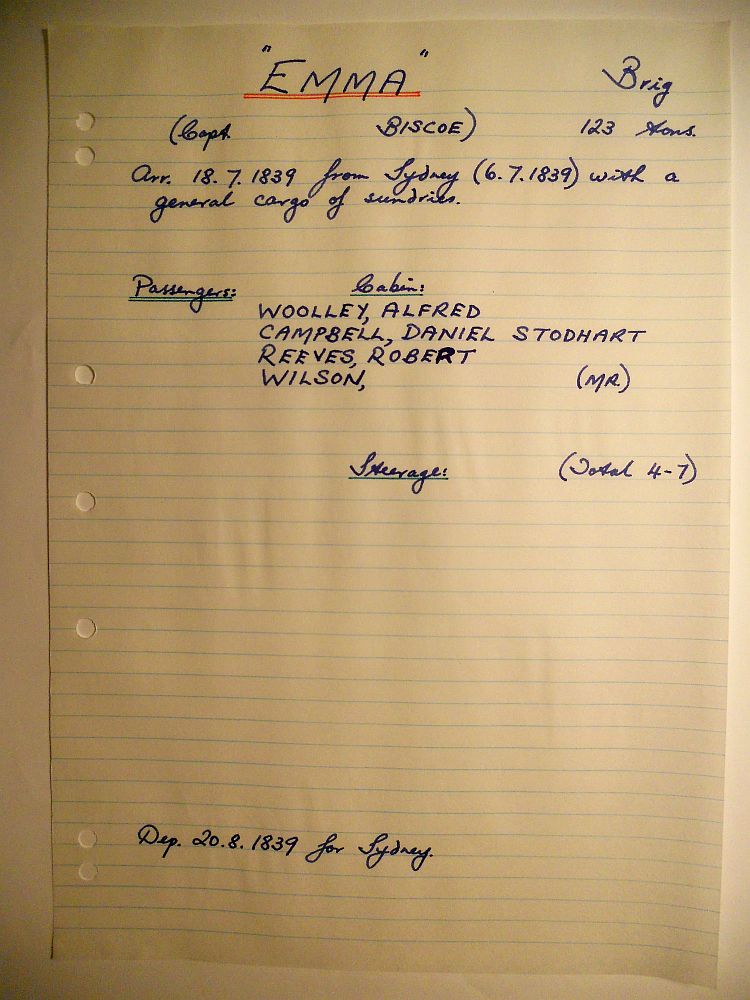 "EMMA" Brig
(Capt. BISCOE) 123 tons.
Arr. 18.7.1839 from Sydney (6.7.1839) with a
general cargo of sundries.
Passengers: Cabin:
WOOLLEY, ALFRED
CAMPBELL, DANIEL STODHART
REEVES, ROBERT
WILSON, (MR)
Steerage: (Total 4-7)
Dep. 20.8.1839 for Sydney.